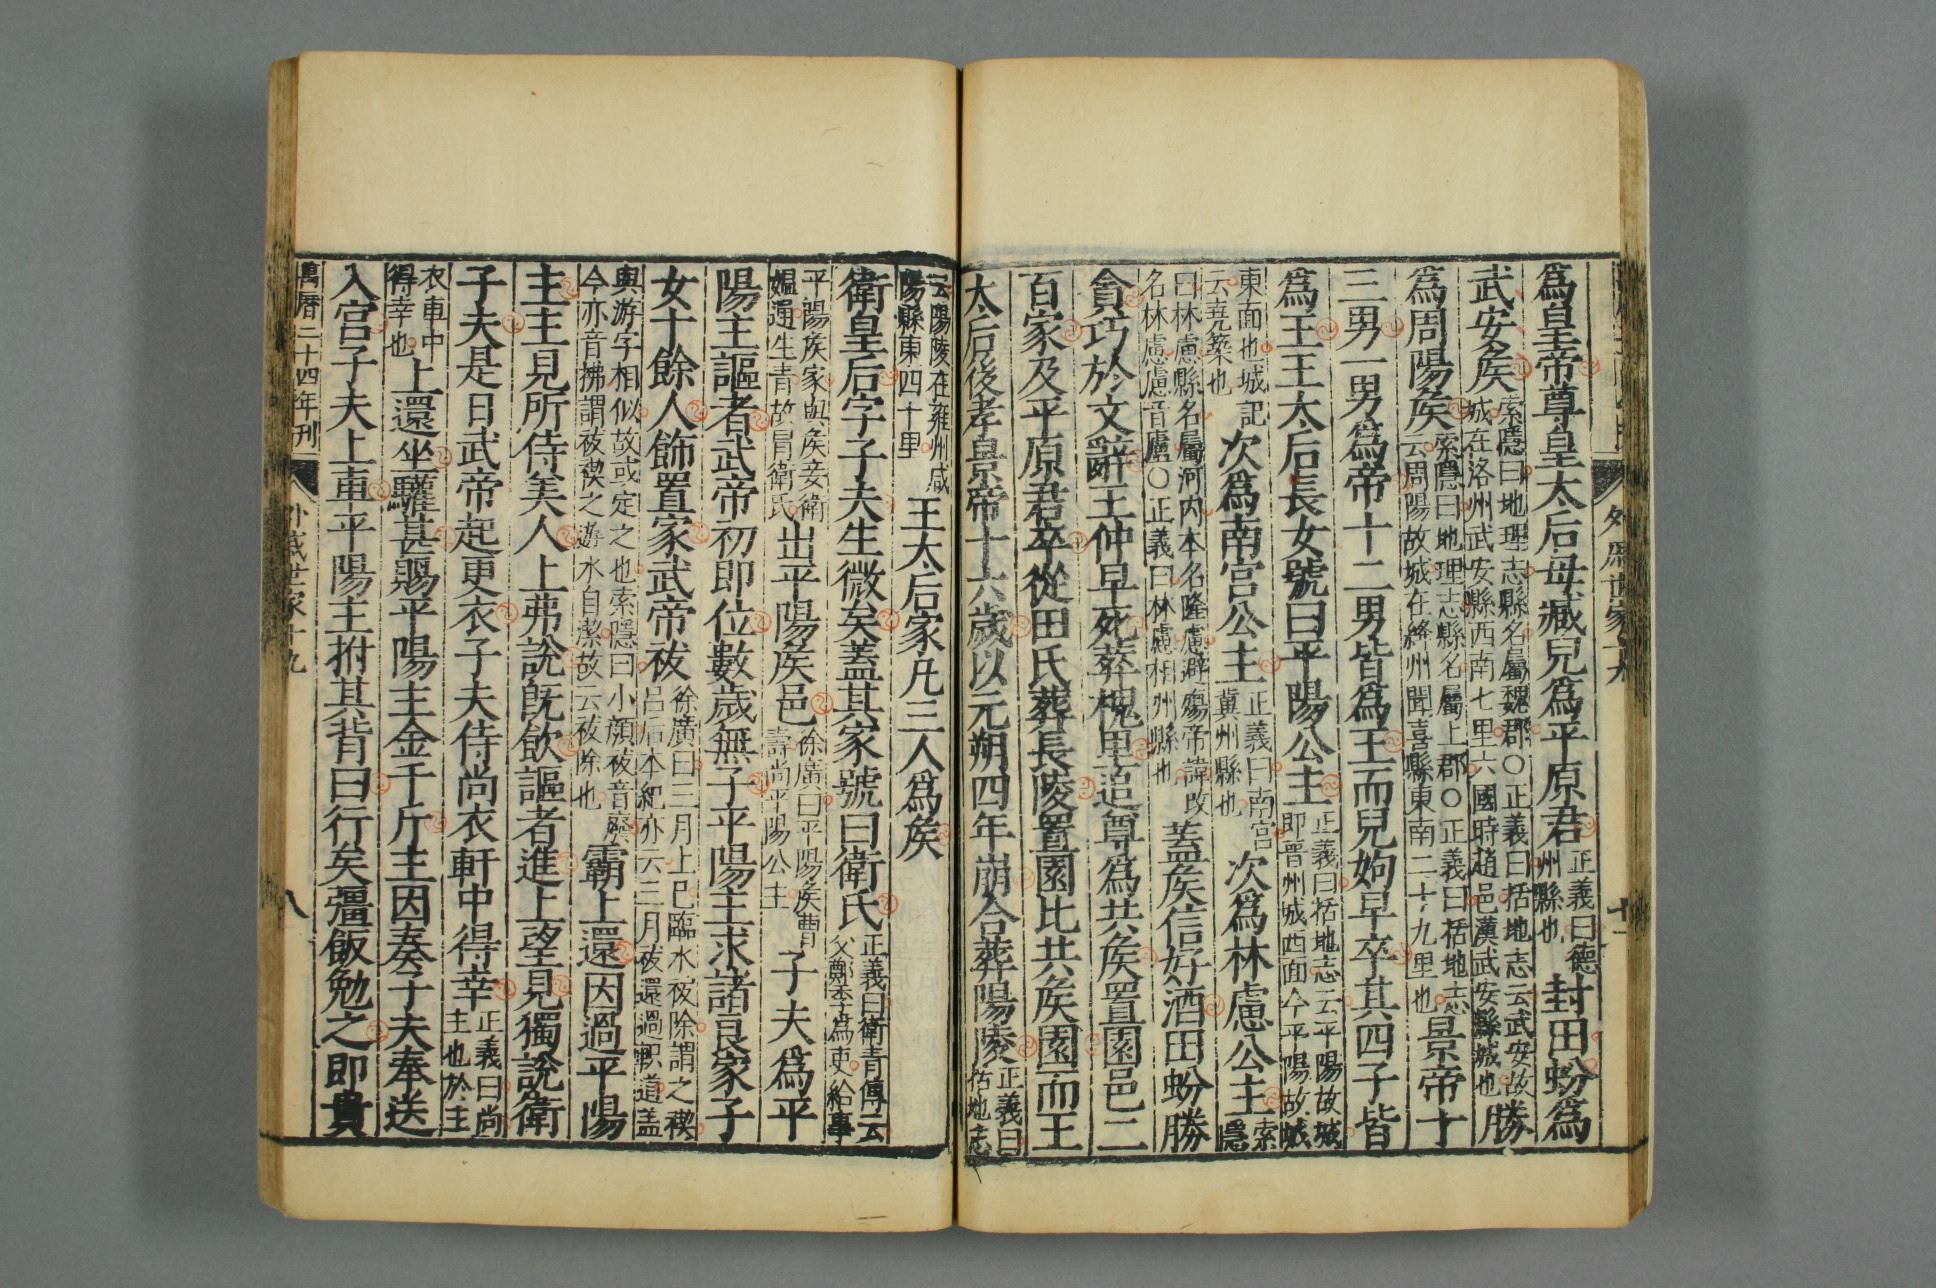 外戚世家十九
十一
爲皇帝尊皇太后母臧兒爲平原君正義曰德州縣也封田蚡爲
武安矦索隱曰地理志縣名屬魏郡○正義曰括地志云武安故城在洛州武安縣西南七里六國時趙邑漢武安縣城也勝
爲周陽矦索隱曰地理志縣名屬上郡○正義曰括地志云周陽故城在絳州聞喜縣東南二十九里也景帝十
三男一男爲帝十二男皆爲王而兒姁早卒其四子皆
爲王王太后長女號曰平陽公主正義曰括地志云平陽故城即晉州城西面今平陽故城
東面也城記云堯築也次爲南宮公主正義曰南宮冀州縣也次爲林慮公主索隱
曰林慮縣名屬河内本名隆慮避殤帝諱改名林慮慮音廬○正義曰林慮相州縣也葢矦信好酒田蚡勝
貪巧於文辭王仲早死葬槐里追尊爲共矦置園邑二
百家及平原君卒從田氏葬長陵置園比共矦園而王
太后後孝景帝十六歲以元朔四年崩合葬陽陵正義曰括地志
云陽陵在雍州咸陽縣東四十里王太后家凡三人爲矦
衛皇后字子夫生微矣蓋其家號曰衛氏正義曰衛青傳云父鄭季爲吏給事
平陽矦家與矦妾衛媼通生青故冒衛氏出平陽矦邑徐廣曰平陽矦曹壽尚平陽公主子夫爲平
陽主謳者武帝初即位數歲無子平陽主求諸良家子
女十餘人飾置家武帝祓徐廣曰三月上巳臨水祓除謂之禊吕后本紀亦云三月祓還過軹道蓋
與游字相似故或定之也索隱曰小顔祓音廢今亦音拂謂祓禊之遊水自潔故云祓除也霸上還因過平陽
主主見所侍美人上弗說旣飲謳者進上望見獨說衛
子夫是日武帝起更衣子夫侍尚衣軒中得幸正義曰尚主也於主
衣車中得幸也上還坐驩甚賜平陽主金千斤主因奏子夫奉送
入宮子夫上車平陽主拊其背曰行矣彊飯勉之即貴
萬曆二十四年刊
外戚世家十九
八